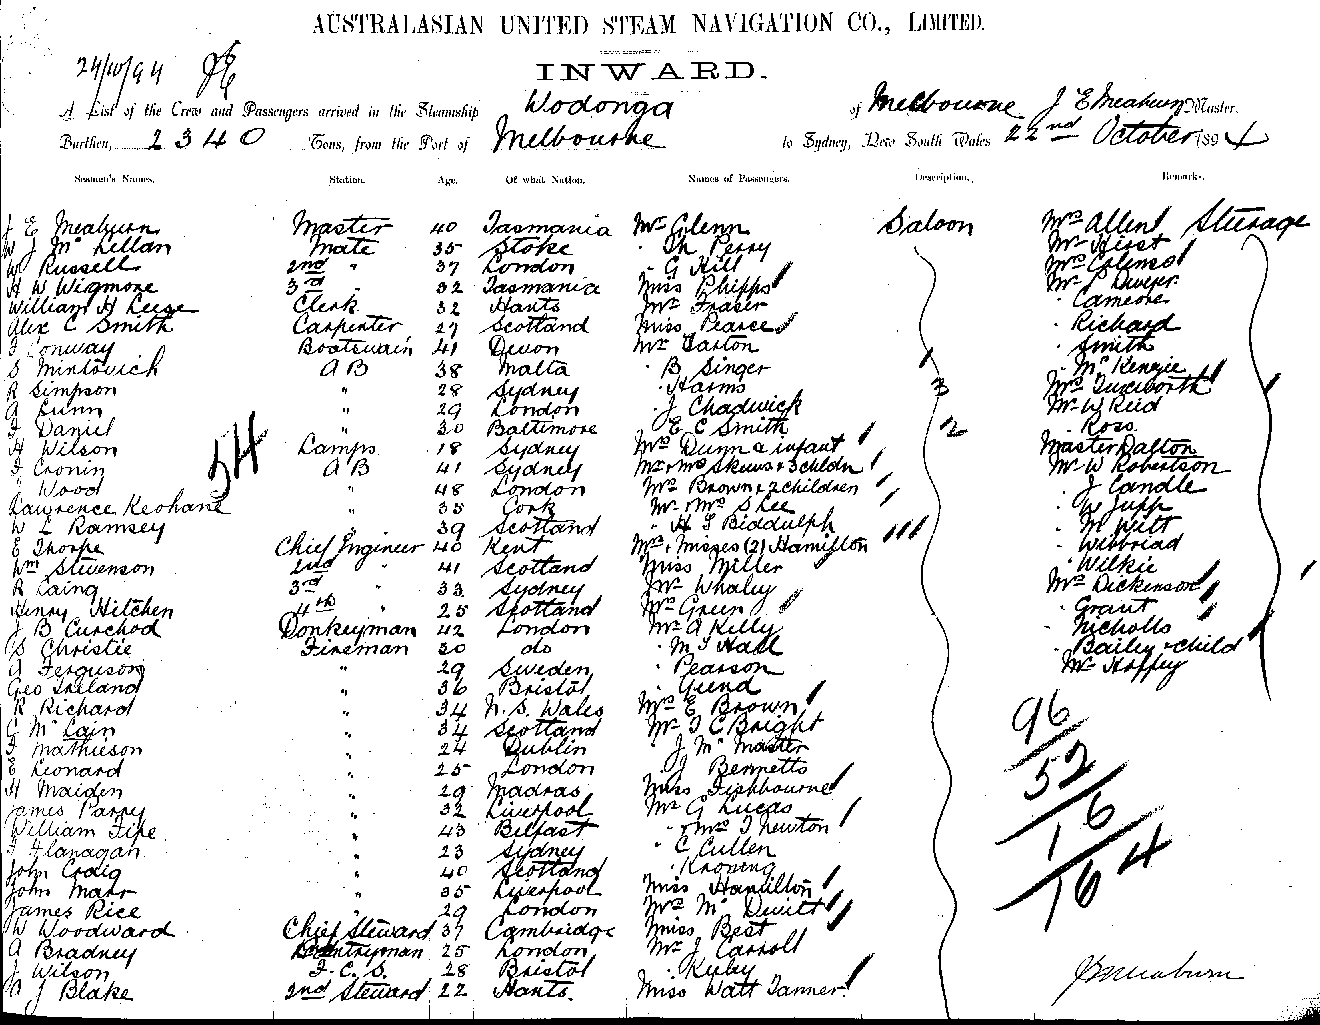 AUSTRALASIAN UNITED STEAM NAVIGATION CO., LIMITED.
24/10/94 JE
INWARD.
A List of the Crew and Passengers arrived in the Steamship Wodonga of Melbourne J E Meaburn Master.
Burthen, 2340 Tons, from the Port of Melbourne to Sydney, New South Wales 22nd October 1894
Seamen's Names. Station. Age. Of what Nation. Names of Passengers. Description. Remarks.
J E Meaburn Master 40 Tasmania Mr Glenn Saloon Mrs Allen Steerage
W J McLellan Mate 35 Stoke " Th Perry Mr Hirst
W Russell 2nd " 37 London " G Hill Mrs Colenso
H W Wigmore 3rd " 32 Tasmania Miss Phipps Mr Dwyer
William H Leige Clerk 32 Hants Mr Fraser " Cameron
Alex C Smith Carpenter 27 Scotland Miss Pearce " Richard
Conway Boatswain 41 Devon Mr Tarlon " Smith
S Mintovich A B 38 Malta " B Singer " McKenzie
R Simpson " 28 Sydney " Harms Mrs Tuxworth
A Lunn " 29 London " J Chadwick 3 Mr W Reid
Daniel " 30 Baltimore " E C Smith 2 " Ross
H Wilson Lamps 18 Sydney Mrs Dunn & infant Master Dalton
Cronin A B 41 Sydney Mr & Mrs Skews & 3 childn Mr W Robertson
54
Wood " 48 London Mrs Brown & 2 children " J Candle
Lawrence Keohane " 35 Cork Mr & Mrs S Lee " W Jupp
W L Ramsey " 39 Scotland " H S Biddulph " M Witt
E Thorpe Chief Engineer 40 Kent Mrs & Misses (2) Hamilton
Wm Stevenson 2nd " 41 Scotland Miss Miller " Wilkie
R Laing 3rd " 33 Sydney Mr Whaley Mrs Dickenson
Henry Hitchen 4th " 25 Scotland Mrs Green " Grant
J B Curchod Donkeyman 42 London Mr A Kelly " Nicholls
S Christie Fireman 30 do " M S Hall " Bailey & child
A Ferguson " 29 Sweden " Pearson Mr Haffey
Geo Ireland " 36 Bristol
R Richard " 34 N. S. Wales Mrs E Brown
C McLain " 34 Scotland Mr T C Bright
Mathieson " 24 Dublin " J McMaster
E Leonard " 25 London " J Bennetts
H Maiden " 29 Madras Miss Fishbourne
James Parry " 32 Liverpool Mr G Lucas
William Fire " 43 Belfast " & Mrs T Newton
Flanagan " 23 Sydney " C Cullen
John Craig " 40 Scotland
John Marr " 35 Liverpool Miss Hamilton
James Rice " 29 London Mrs McDevitt
W Woodward Chief Steward 37 Cambridge Miss Best
A Bradney Pantryman 25 London Mr J Carroll
J Wilson F. C. S. 28 Bristol " Kirby
J Blake 2nd Steward 22 Hants. Miss Watt Tanner
96
52
16
164
J E Meaburn